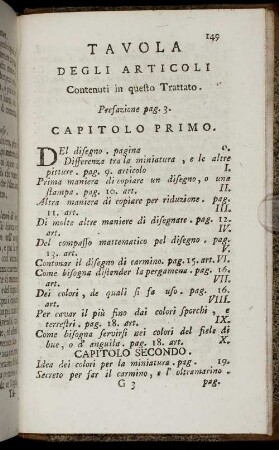 149
TAVOLA
DEGLI ARTICOLI
Contenuti in questo Trattato.
Prefazione pag. 3.
CAPITOLO PRIMO.
DEl disegno. pagina 0.
Differenza tra la miniatura, e le altre
pitture. pag. 9. articolo I.
Prima maniera di copiare un disegno, o una
stampa. pag. 10. art. II.
Altra maniera di copiare per riduzione. pag.
11. art. III.
Di molte altre maniere di disegnare. pag. 12.
art. IV.
Del compasso mattematico pel disegno. pag.
13. art. V.
Contonar il disegno di carmino. pag. 15. art. VI.
Come bisogna distender la pergamena. pag. 16.
art. VII.
Dei colori, de quali si fa uso. pag. 16.
art. VIII.
Per cavar il più fino dai colori sporchi, e
terrestri. pag. 18. art. IX.
Come bisogna servirsi nei colori del fiele di
bue, o d' anguila. pag. 18. art. X.
CAPITOLO SECONDO.
Idea dei colori per la miniatura. pag. 19.
Secreto per far il carmino, e l' oltramarino.
G 3 pag.